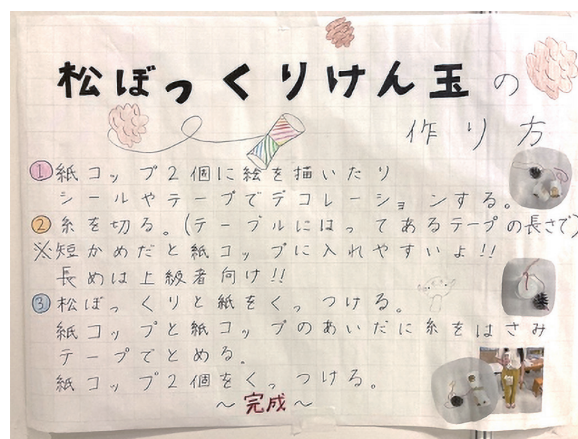 松ぼっくりけん玉の
作り方
①紙コップ2個に絵を描いたり
シールやテープでデコレーションする。
②糸を切る。(テーブルにはってあるテープの長さで)
※短かめだと紙コップに入れやすいよ!!
長めは上級者向け!!
③松ぼっくりと紙をくっつける。
紙コップと紙コップのあいだに糸をはさみ
テープでとめる。
紙コップ2個をくっつける。
～完成～